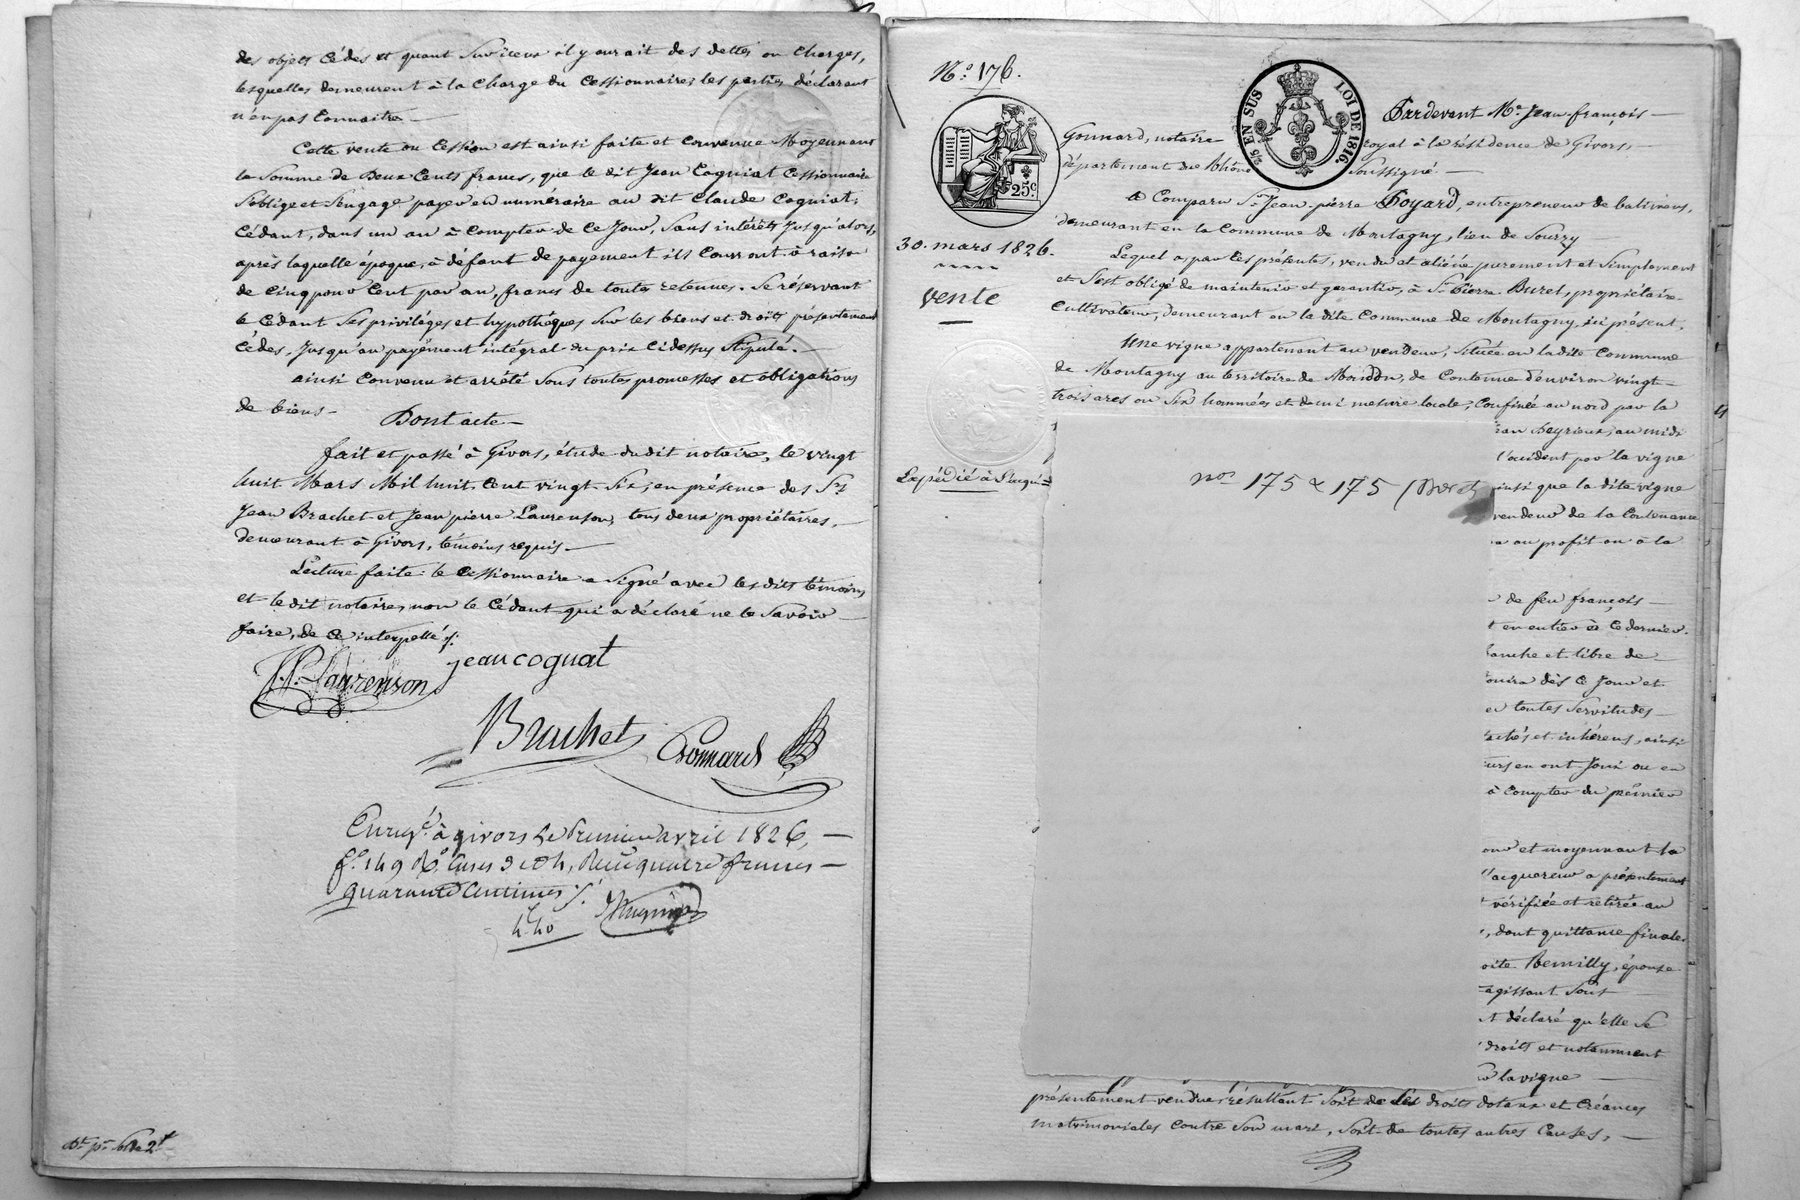 des objets cédés et quant suviceux il y aurait des dettes ou charges,
lesquelles demeurent à la charge du cessionnaire; les parties déclarant
n'en pas connaitre
Cette vente ou cession est ainsi faite et convenue moyennant
la somme de deux cents francs, que le dit Jean Cogniat cessionnaire
s'oblige et s'engage payer en numéraire au dit Claude Cogniat,
cédant, dans un an à compter de ce jour, sans intérêts jusqu'alors,
après laquelle époque, à défaut de payement ils courront à raison
de cinq pour cent par an, francs de toutes retenues. Se réservant
le cédant ses priviléges et hypothèques sur les biens et droits présentement
cédés, jusqu'au payement intégral du prix cidessus stipulé.
ainsi convenu et arrêté sous toutes promesses et obligations
de biens
Dont acte
fait et passé à Givors, étude du dit notaire, le vingt
huit Mars Mil huit cent vingt six, en présence des Srs
Jean Brachet et Jean pierre Laurenson, tous deux propriétaires,
demeurant à Givors, témoins requis
Lecture faite le cessionnaire a signé avec les dits témoins
et le dit notaire, non le cédant qui a déclaré ne le savoir
faire, de ce interpellé
J.P. Laurenson jean cognat
Brachet Gonnard
Enregé. à givors le Premier avril 1826,
fo. 149 Ro. Cases 3 et 4, Reçu quatre francs
quarante centimes
4.40
No. 176.
5/6 EN SUS LOI DE 1816.
25c.
Pardevant Me. Jean françois
Gonnard, notaire royal à la résidence de Givors,
département du Rhône soussigné
A Comparu Sr. Jean pierre Goyard, entrepreneur de batimens,
demeurant en la commune de Montagny, lieu de Sourzy
30. mars 1826.
vente
Lequel a par ces présentes, vendu et aliéné purement et simplement
et s'est obligé de maintenir et garantir, à Sr. Pierre Buret, propriétaire
cultivateur, demeurant en la dite commune de Montagny, ici présent,
Une vigne appartenant au vendeur, située en la dite commune
de Montagny au territoire de, de contenue d'environ vingt
trois ares ou six hommées et demi mesure locale; confinée au nord par la
au midi
l'occident par la vigne
Expédié à
nos 175 & 175
ainsi que la dite vigne
vendeur de la contenance
au profit ou à la
de feu françois
en entier à ce dernier.
franche et libre de
jouira dès ce jour et
toutes servitudes
tachés et inhérens, ainsi
eurs en ont joui ou en
à compter du premier
et moyennant la
l'acquereur a présentement
vérifiée et retirée au
, dont quittance finale.
Remilly, épouse
agissant sous
déclaré qu'elle se
droits et notamment
la vigne
présentement vendue, résultant soit de ses droits dotaux et créances
matrimoniales contre son mari, soit de toutes autres causes,